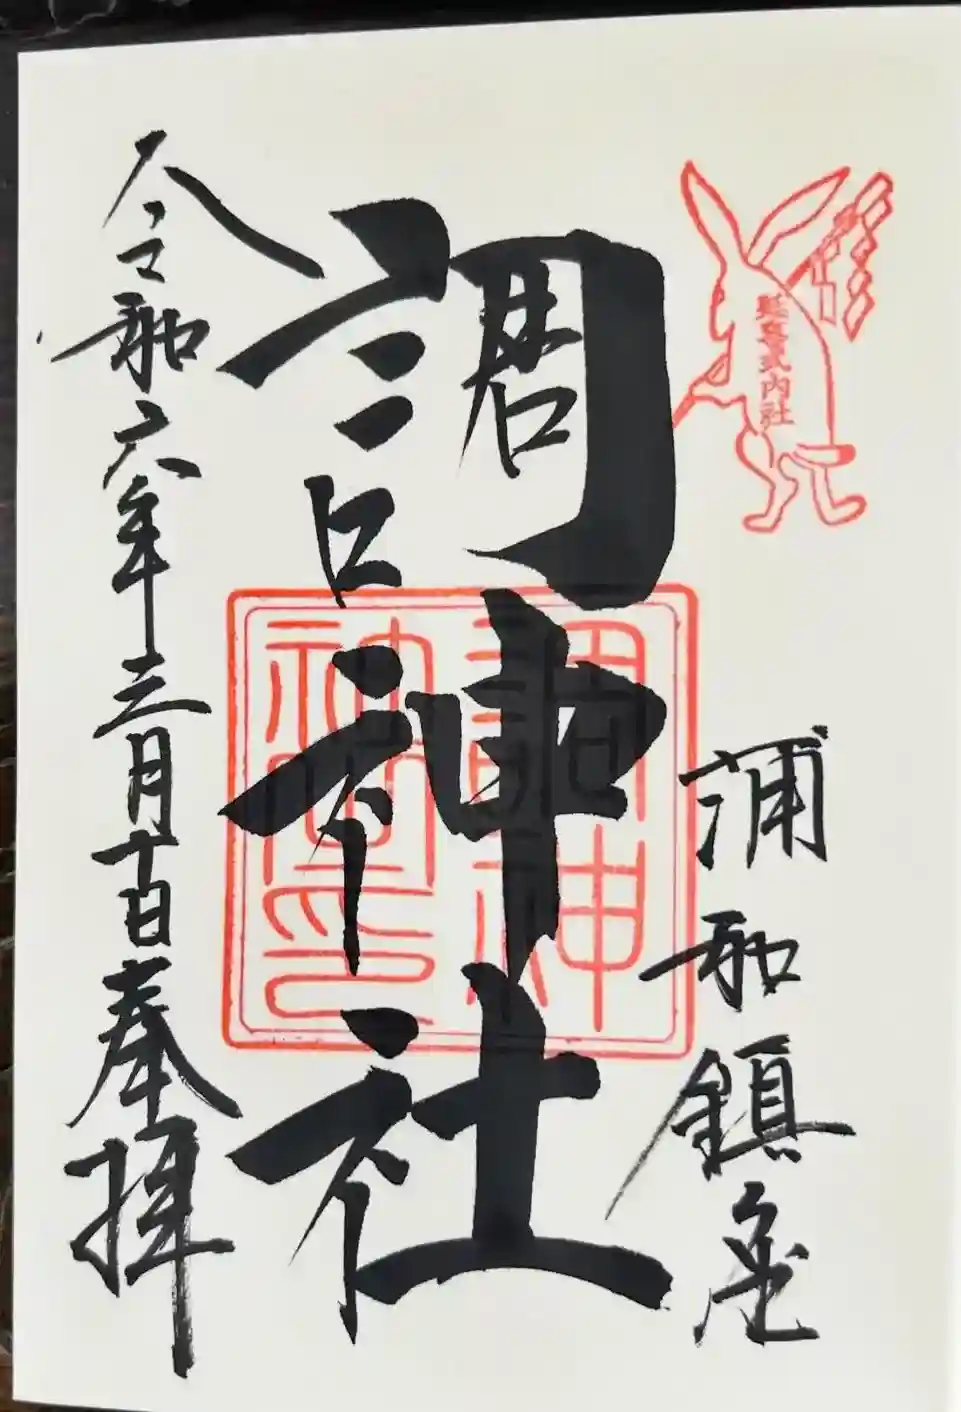 延喜式内社
浦和鎮座
調神社
令和六年三月十日奉拝